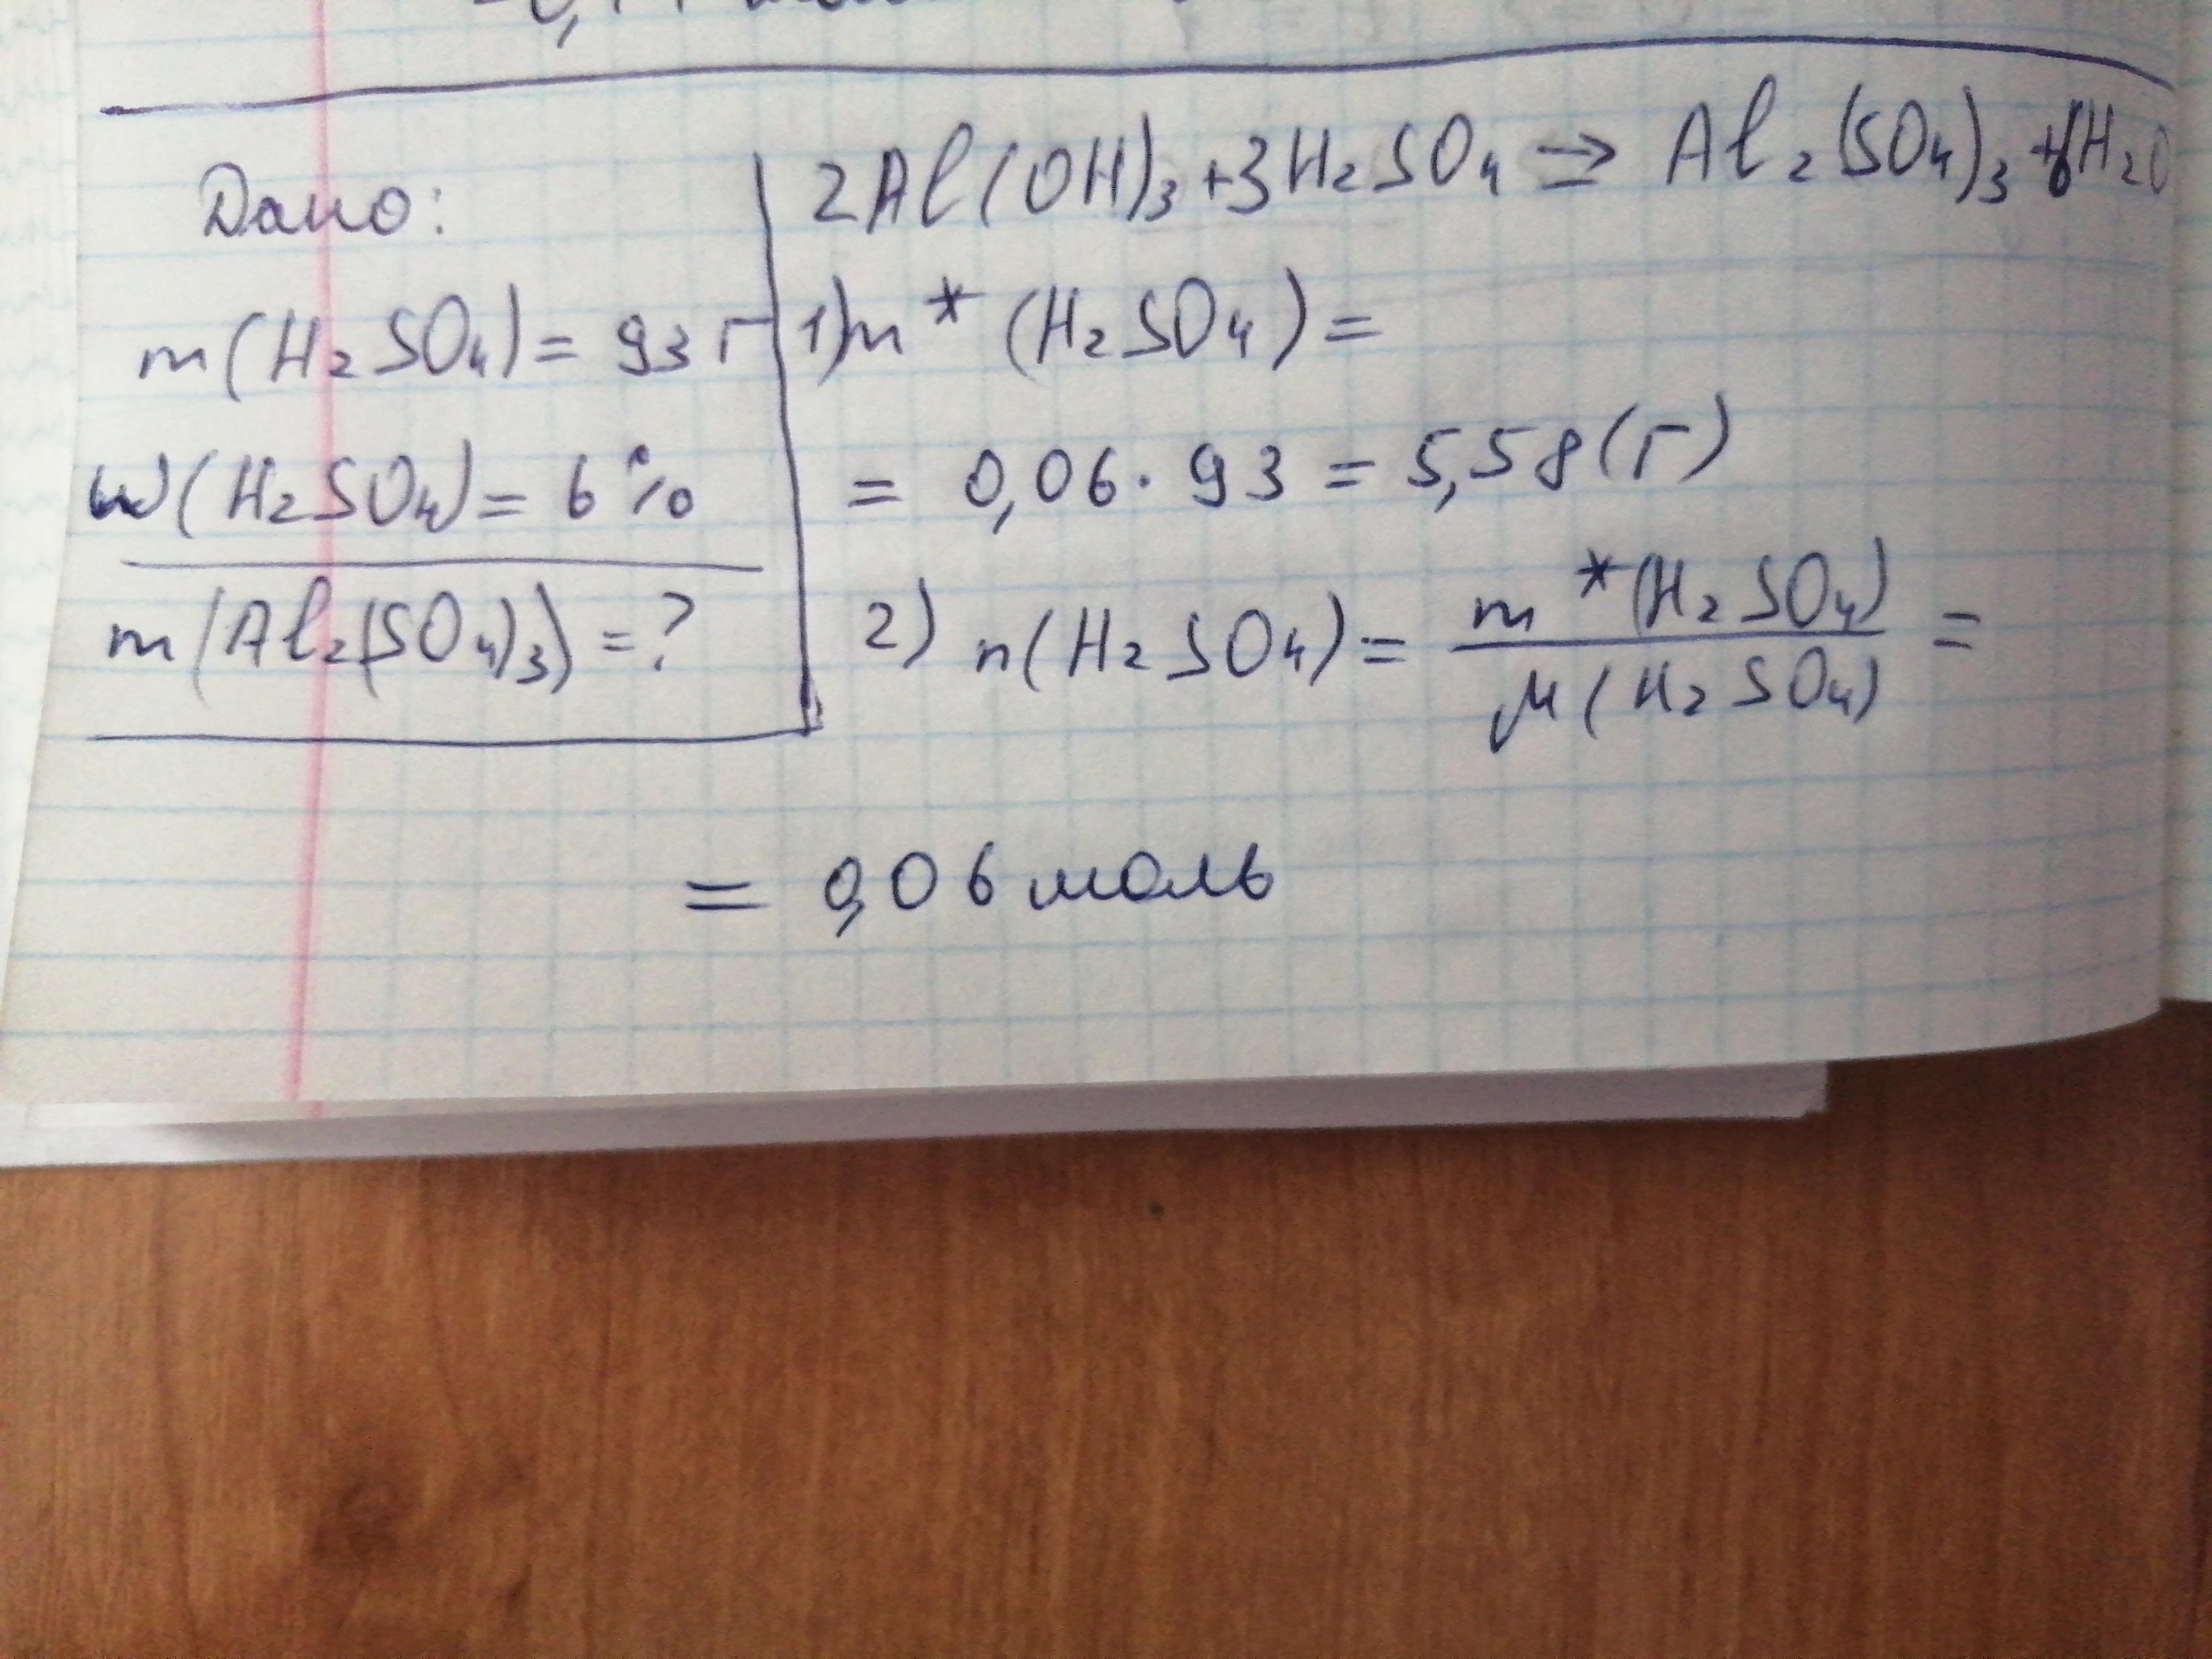 Дано:
m(H₂SO₄) = 93 г
ω(H₂SO₄) = 6 %
m(Al₂(SO₄)₃) = ?
2Al(OH)₃ + 3H₂SO₄ ⇒ Al₂(SO₄)₃ + 6H₂O
1) m* (H₂SO₄) =
= 0,06 · 93 = 5,58 (г)
2) n(H₂SO₄) = m*(H₂SO₄) / μ(H₂SO₄) =
= 0,06 моль